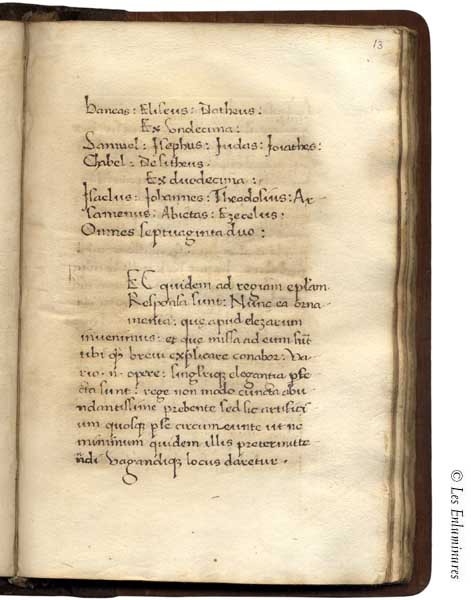 13
baneas: Eliseus: Datheus:
Ex Undecima:
Samuol: Isephus: Iudas: Ionathes:
Chabel: Desitheus.
Ex duodecima:
Isaelus: Iohannes: Theodosius: Ar
samenus: Abietas: Ezecelus:
Omnes septuaginta duo:
EC quidem ad regiam eplam
Responsa sunt: Nunc ea orna
menta: que apud elezarum
invenimus: et que missa ad eum sunt
tibi breui explicare conabor: Va
rio n opere: singlisq elegantia pfe
cta sunt: rege non modo cuncta abu
ndantissime prebente sed sic artifici
um quosq pse circum eunte ut ne
minimum quidem illis pretermitte
ndi vagandiq locus daretur.
© Les Enluminures